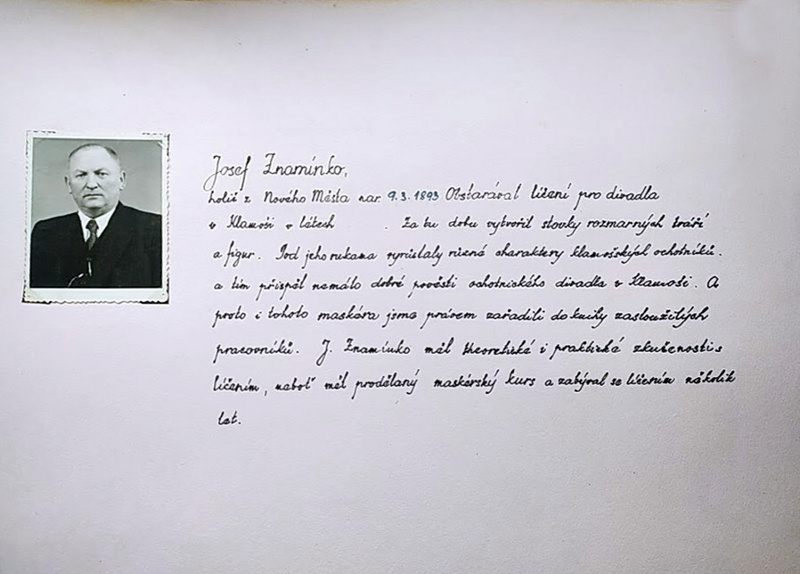 Josef Znamínko,
holič z Nového Města nar. 9.3.1893 Obstarával líčení pro divadla
v Klamoši v létech . Za tu dobu vytvořil stovky rozmarných tváří
a figur. Pod jeho rukama vyrůstaly různé charaktery klamošských ochotníků.
a tím přispěl nemálo dobré pověsti ochotnického divadla v Klamoši. A
proto i tohoto maskéra jsme právem zařadili do knihy zasloužilých
pracovníků. J. Znamínko měl theoretické i praktické zkušenosti s
líčením, neboť měl prodělaný maskérský kurs a zabýval se líčením několik
let.